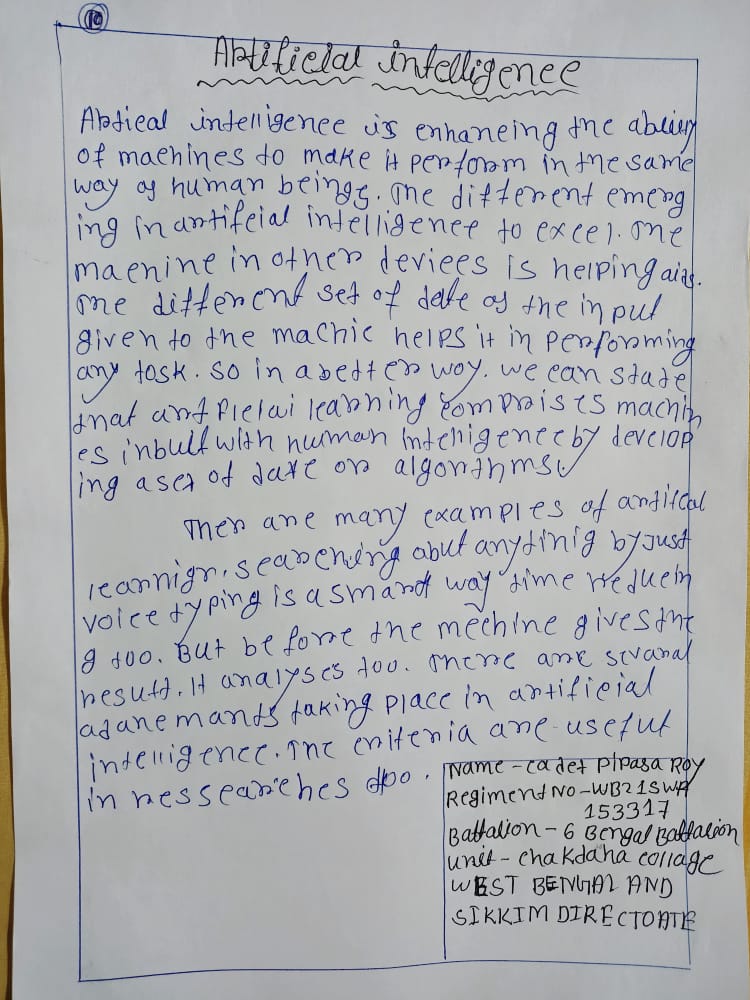 10
Artificial intelligence
Artical intelligence is enhancing the ability
of machines to make it perform in the same
way of human beings. The different emerg
ing in artifcial intelligence to excel. The
machine in other devices is helping aids.
The different set of date of the input
given to the machic helps it in performing
any task. So in a better way. we can state
that artficial learning comprises machin
es inbult with human intelligence by develop
ing a set of date or algorithms.
Ther are many examples of artifcal
learnign. searching abut anythinig by just
voice typing is a smart way time reducin
g too. But before the mechine gives the
result. It analyses too. There are sevaral
adanemants taking place in artificial
intelligence. The criteria are useful
in ressearches too.
Name - cadet Pipasa Roy
Regiment No - WB21SWA
153317
Battalion - 6 Bengal Battalion
unit - chakdaha collage
WEST BENGAL AND
SIKKIM DIRECTOATE